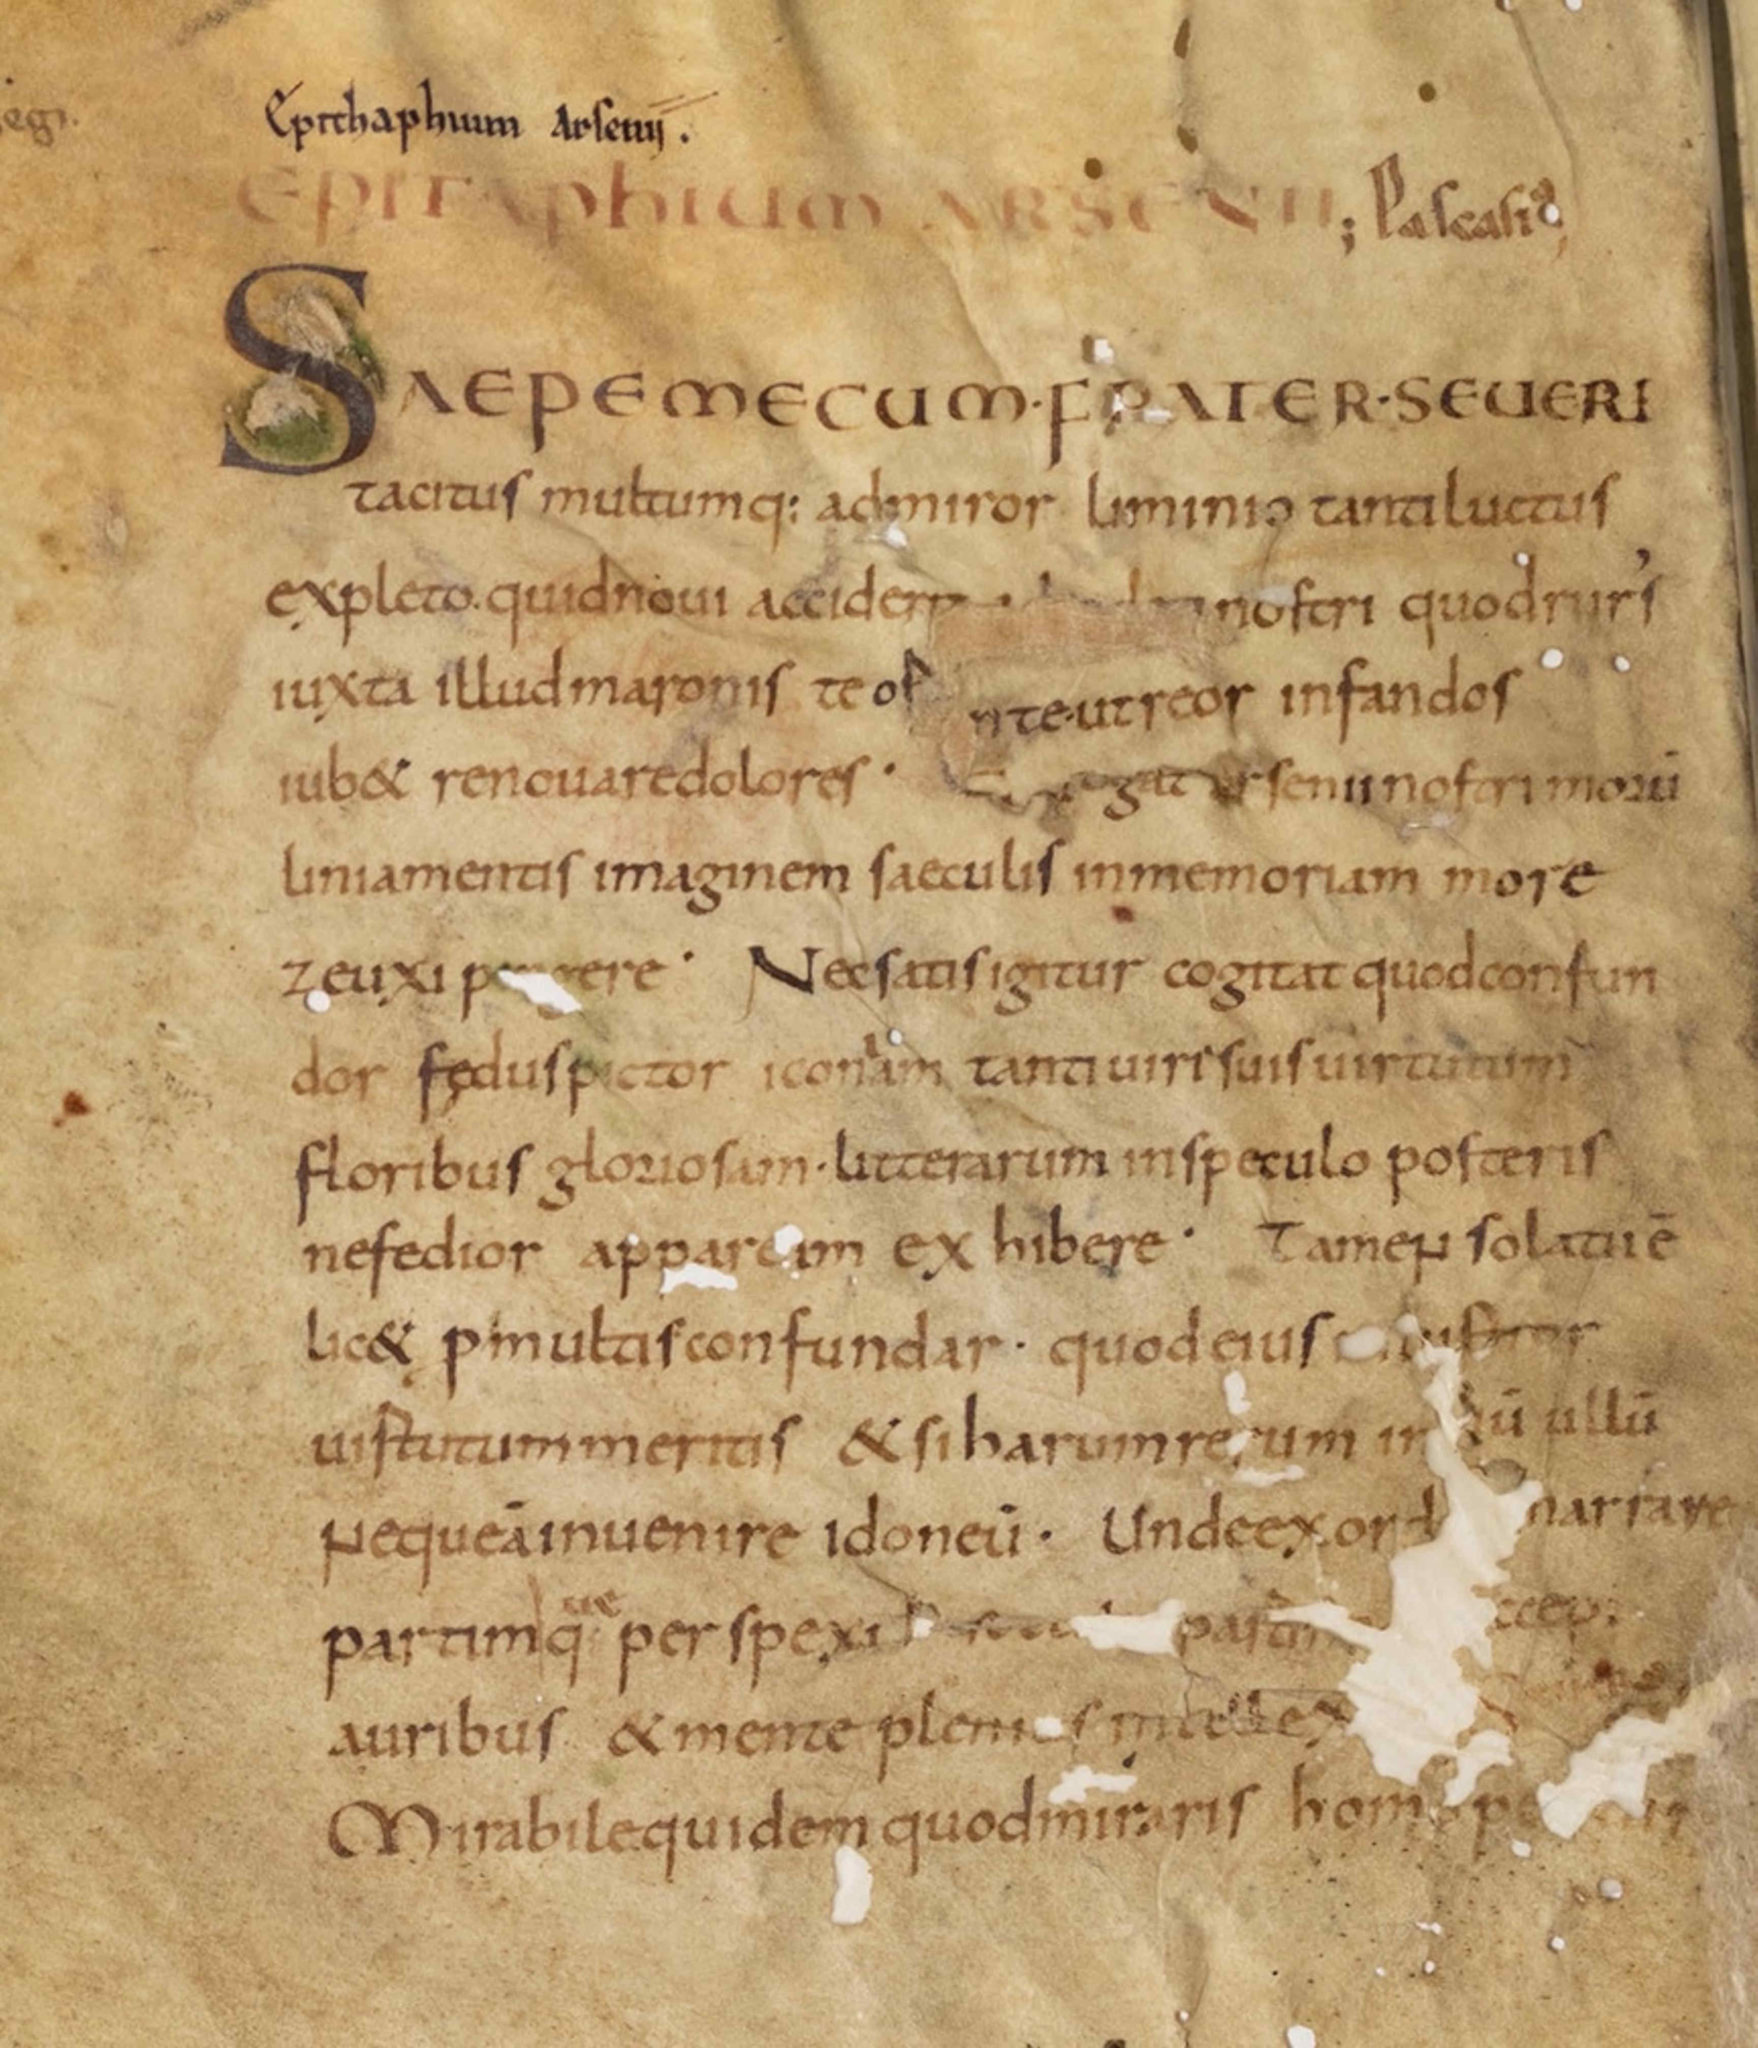 egi.
Epithaphium Arsenij.
EPITAPHIUM ARSENII; Pascasiꝰ;
SAEPE MECUM · FRATER · SEUERI
tacitus multumq; admiror limini tanti luctus
expleto. quid noui nostri quod rurs
iuxta illud maronis te ut reor infandos
iub& renouare dolores · arsenii nostri morū
liniamentis imaginem saeculis in memoriam more
zeuxi · Nec satis igitur cogitat quod confun
dor fędus pictor iconam tanti uiri suis uirtutum
floribus gloriosam · litterarum in speculo posteris
ne fedior appaream exhibere · Tamen solatii ē
lic& p multis confundar · quod eius
uirtutum meritis & si harum rerum ullū
nequeā inuenire idoneū · Unde narrare
partimq; ue perspexi
auribus & mente plenius
Mirabile quidem quod miraris